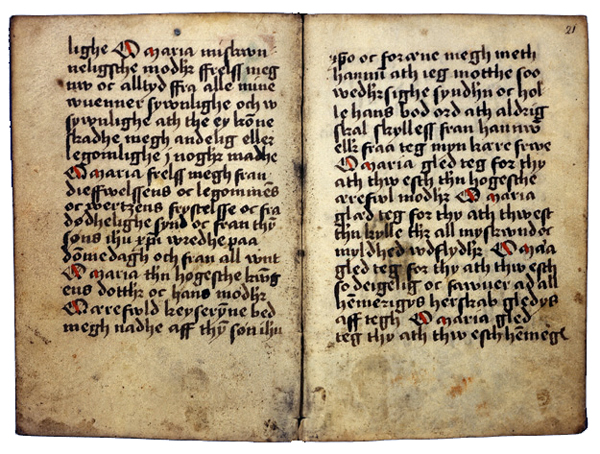 lighe O maria miskwn
neligsthe modhr ffrelss meg
nw oc alltyd ffra alle mine
wuenner sywnlighe och w
sywnlighe ath the ey kōne
skadhe megh andelig eller
legomlighe j noghr madhe
O maria frelss megh fran
dieffwelssens oc legommēs
oc werltzens frystelsse oc fra
dødhelighe synd oc fran thyn
søns ihu xpi wredhe paa
dōmedagh och fran all wnt
O maria thn høgesthe kwng
ens dotthr oc hans modhr
O ærrefwld keyserȳne bed
megh nadhe aff thȳ søn ihu
21
xpo oc foræne megh meth
hannū ath ieg motthe soo
wedhrsighe syndhn oc hol
le hans bod ord ath aldrig
skal skylless fran hannwm
ellr fraa teg myn kærre frwe
O maria gled teg for thy
ath thw esth thn høgesthe
ærrefwl modhr O maria
glæd teg for thy ath thw est
thn kylle thr all myskwndoc
myldhed wdflydhr O maria
gled teg for thy ath thw esth
so deigelig oc fawuer ad all
hēmerigys herskab gledys
aff tegh O maria gled
teg thy ath thw esth hēmegl